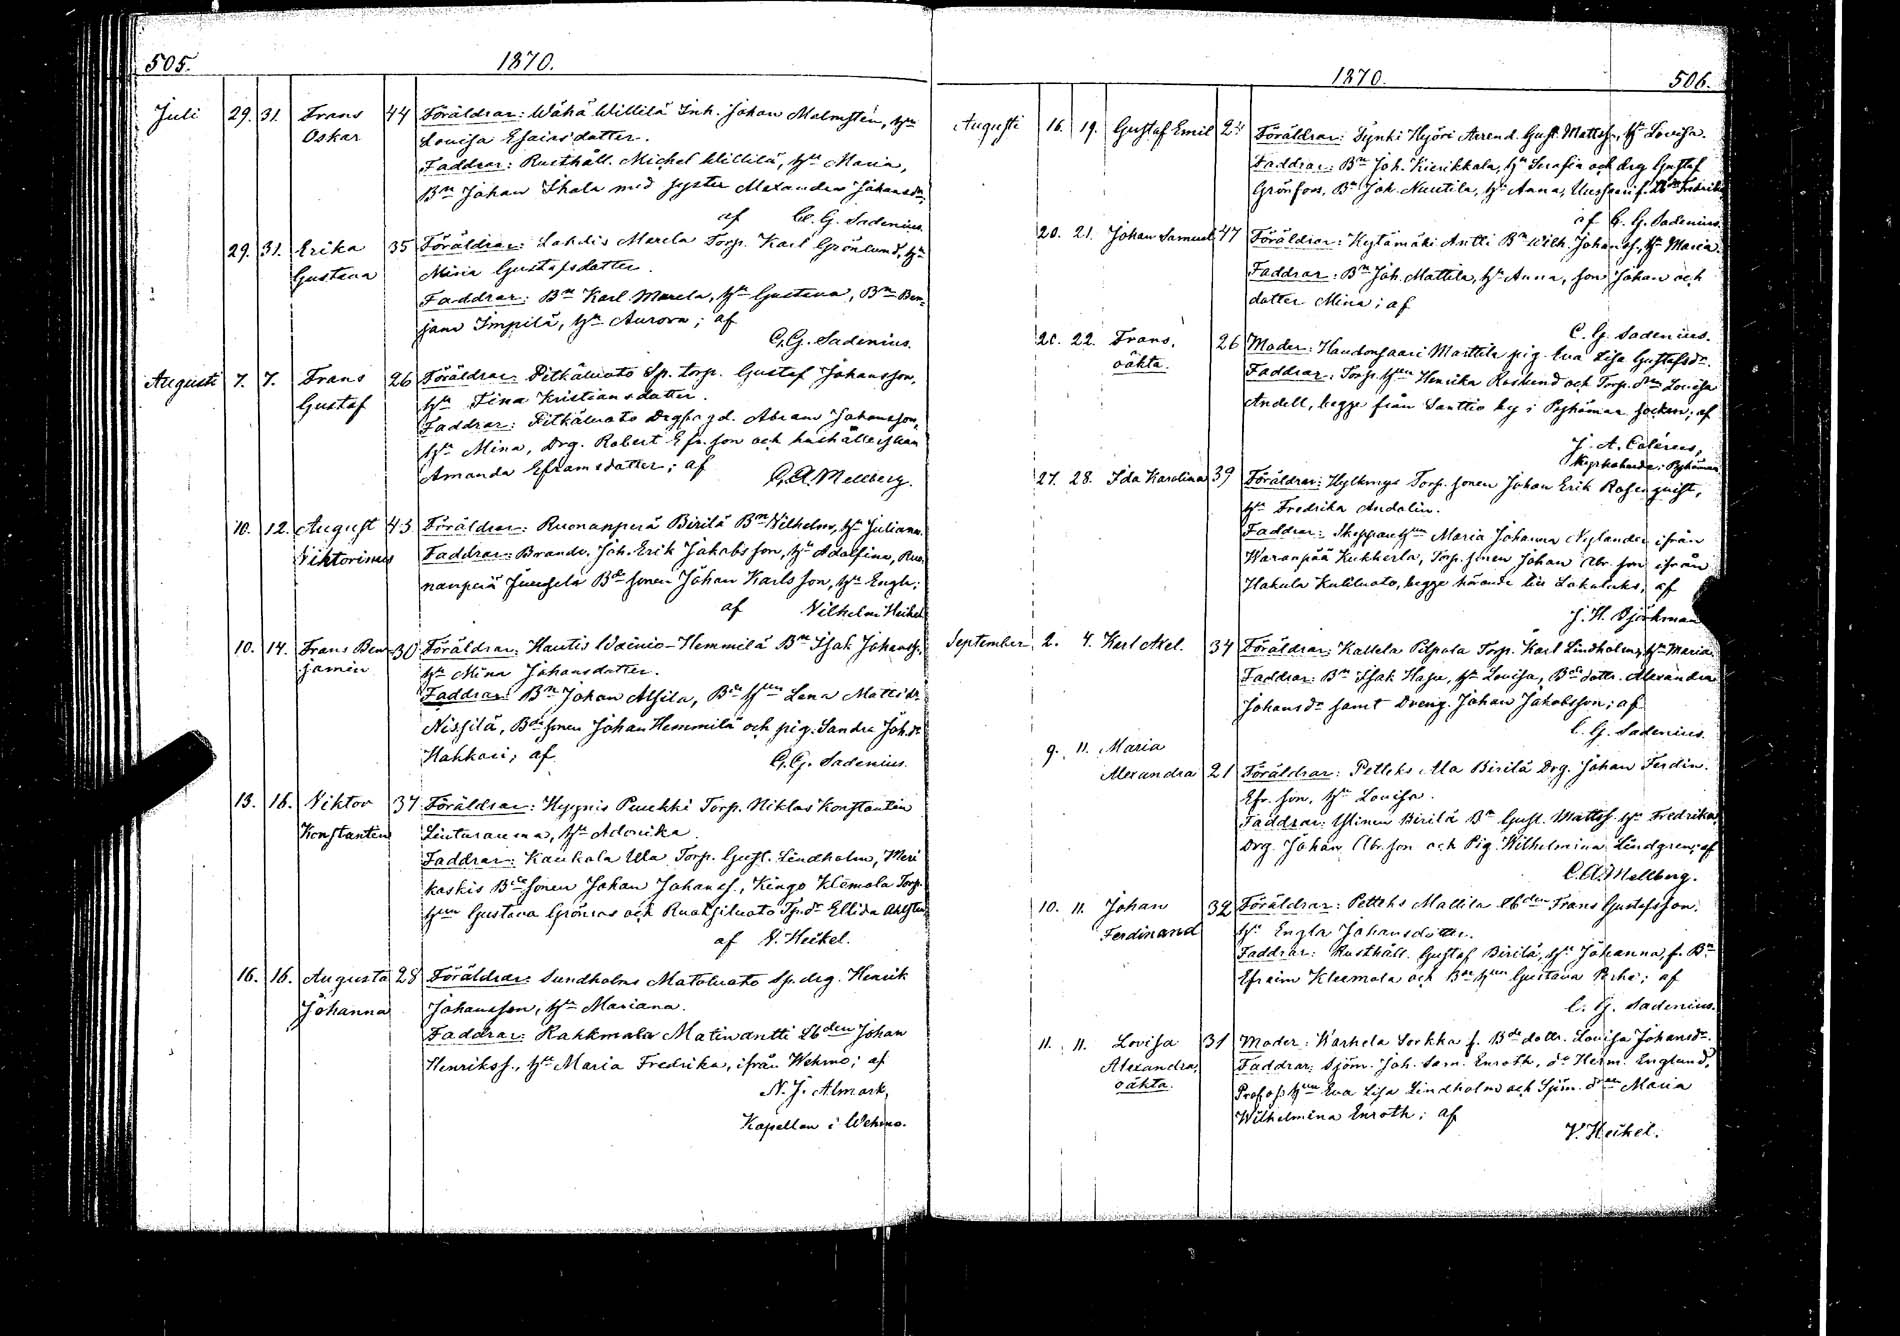 505. 1870.
Juli 29. 31. Frans 44 Föräldrar: Wähä Willilä Inh. Johan Malmstén, hu
Oskar Lovisa Esaiasdatter.
Faddrar: Rusthåll. Michel Willilä, hu Maria,
Bn Johan Ihala med syster Alexandra Johansdr,
af C. G. Sadenius.
29. 31. Erika 35 Föräldrar: Lahdis Marela Torp. Karl Grönlund, hu
Gustava Mina Gustafsdatter.
Faddrar: Bn Karl Marela, hu Gustava, Bn Ben-
jam Impilä, hu Aurora; af
C. G. Sadenius.
Augusti 7. 7. Frans 26 Föräldrar: Pitkäluoto Sp. torp. Gustaf Johansson,
Gustaf hu Fina Kristiansdatter.
Faddrar: Pitkäluoto Abram Johansson,
hu Mina, Drg. Robert Efr. son och
Amanda Eframsdatter; af C. A. Mellberg.
10. 12. August 43 Föräldrar: Ruonanperä Birilä Bn Vilhelm, hu Juliana.
Viktorinus Faddrar: Brandv. Joh. Erik Jakobsson, hu Adolfina, Ruo-
nanperä Bde sonen Johan Karlsson, hu Engla;
af Vilhelm Heikel
10. 14. Frans Ben- 30 Föräldrar: Hautis Wäinio-Hemmilä Bn Isak Johanss.
jamin hu Mina Johansdatter.
Faddrar: Bn Johan Alsila, Bde hun Lena Mattsdr
Nissilä, Bde sonen Johan Hemmilä och pig. Sandra Joh.dr
Hakkari; af C. G. Sadenius.
13. 16. Viktor 37 Föräldrar: Hypnis Puukki Torp. Niklas Konstantin
Konstantin hu Adonika.
Faddrar: Kaukola Ula Torp. Gust. Lindholm, Meri
kaskis Bde sonen Johan Johanss., Kingo Klemola Torp.
hun Gustava Grönros och Ruoksiluoto Tp.dr Ellida
af V. Heikel.
16. 16. Augusta 28 Föräldrar: Sundholms Matoluoto Sp. drg. Henrik
Johanna Johansson, hu Mariana.
Faddrar: Rahkmala Matinantti Lbden Johan
Henrikss., hu Maria Fredrika, ifrån Wehmo; af
N. J. Almark,
Kapellan i Wehmo.
1870. 506.
Augusti 16. 19. Gustaf Emil 24 Föräldrar: Hyöri Arrend. Gust. Mattss., hu Lovisa.
Faddrar: Bn Joh. Kierikkala, hu Serafia och drg Gustaf
Grönfors, Bn Joh. Nuutila, hu Anna,
af C. G. Sadenius.
20. 21. Johan Samuel 47 Föräldrar: Kytämäki Antti Bn Wilh. Johanss., hu Maria.
Faddrar: Bn Joh. Mattila, hu Anna, son Johan och
datter Mina; af
C. G. Sadenius.
20. 22. Frans, 26 Moder: Haudonsaari Marttila pig. Eva Lisa Gustafsdr
oäkta. Faddrar: Torp. hun Henrika Roslund och Torp. drn Lovisa
Andell, begge från Santtio by i Pyhämaa socken; af
J. A. Colérus,
Kyrkoherde i Pyhämaa.
27. 28. Ida Karolina 39 Föräldrar: Torp. sonen Johan Erik Rosenquist,
hu Fredrika Andolin.
Faddrar: Skeppare hun Maria Johanna Nylander ifrån
Waranpää Kukherla, Torp. sonen Johan Abr. son ifrån
Hakula Kuliluoto, begge hörande till Lokalaks, af
J. H. Björkman
September 2. 4. Karl Axel. 34 Föräldrar: Kallela Pilpola Torp. Karl Lindholm, hu Maria.
Faddrar: Bn Isak Haga, hu Lovisa, Bde dottr. Alexandra
Johansdr samt Dreng. Johan Jakobsson; af
C. G. Sadenius.
9. 11. Maria
Alexandra 21 Föräldrar: Petteks Ala Birilä Drg. Johan Ferdin.
Efr. son, hu Lovisa.
Faddrar: Ylinen Birilä Bn Gust. Mattss. hu Fredrika,
Drg. Johan Abr. son och Pig. Wilhelmina Lindgren; af
C. A. Mellberg.
10. 11. Johan 32 Föräldrar: Petteks Mattila Lbden Frans Gustafsson.
Ferdinand hu Engla Johansdotter.
Faddrar: Rusthåll. Gustaf Birilä, hu Johanna, f. Bn
Efraim Kleemola och Bde hun Gustava Perho; af
C. G. Sadenius.
11. 11. Lovisa 31 Moder: Warhela Sorkka f. Bde dottr. Lovisa Johansdr.
Alexandra, Faddrar: Sjöm. Joh. Sam. Enroth, do Herm. Englund,
oäkta. Profoss hun Eva Lisa Lindholm och Sjöm. drn Maria
Wilhelmina Enroth; af
V. Heikel.